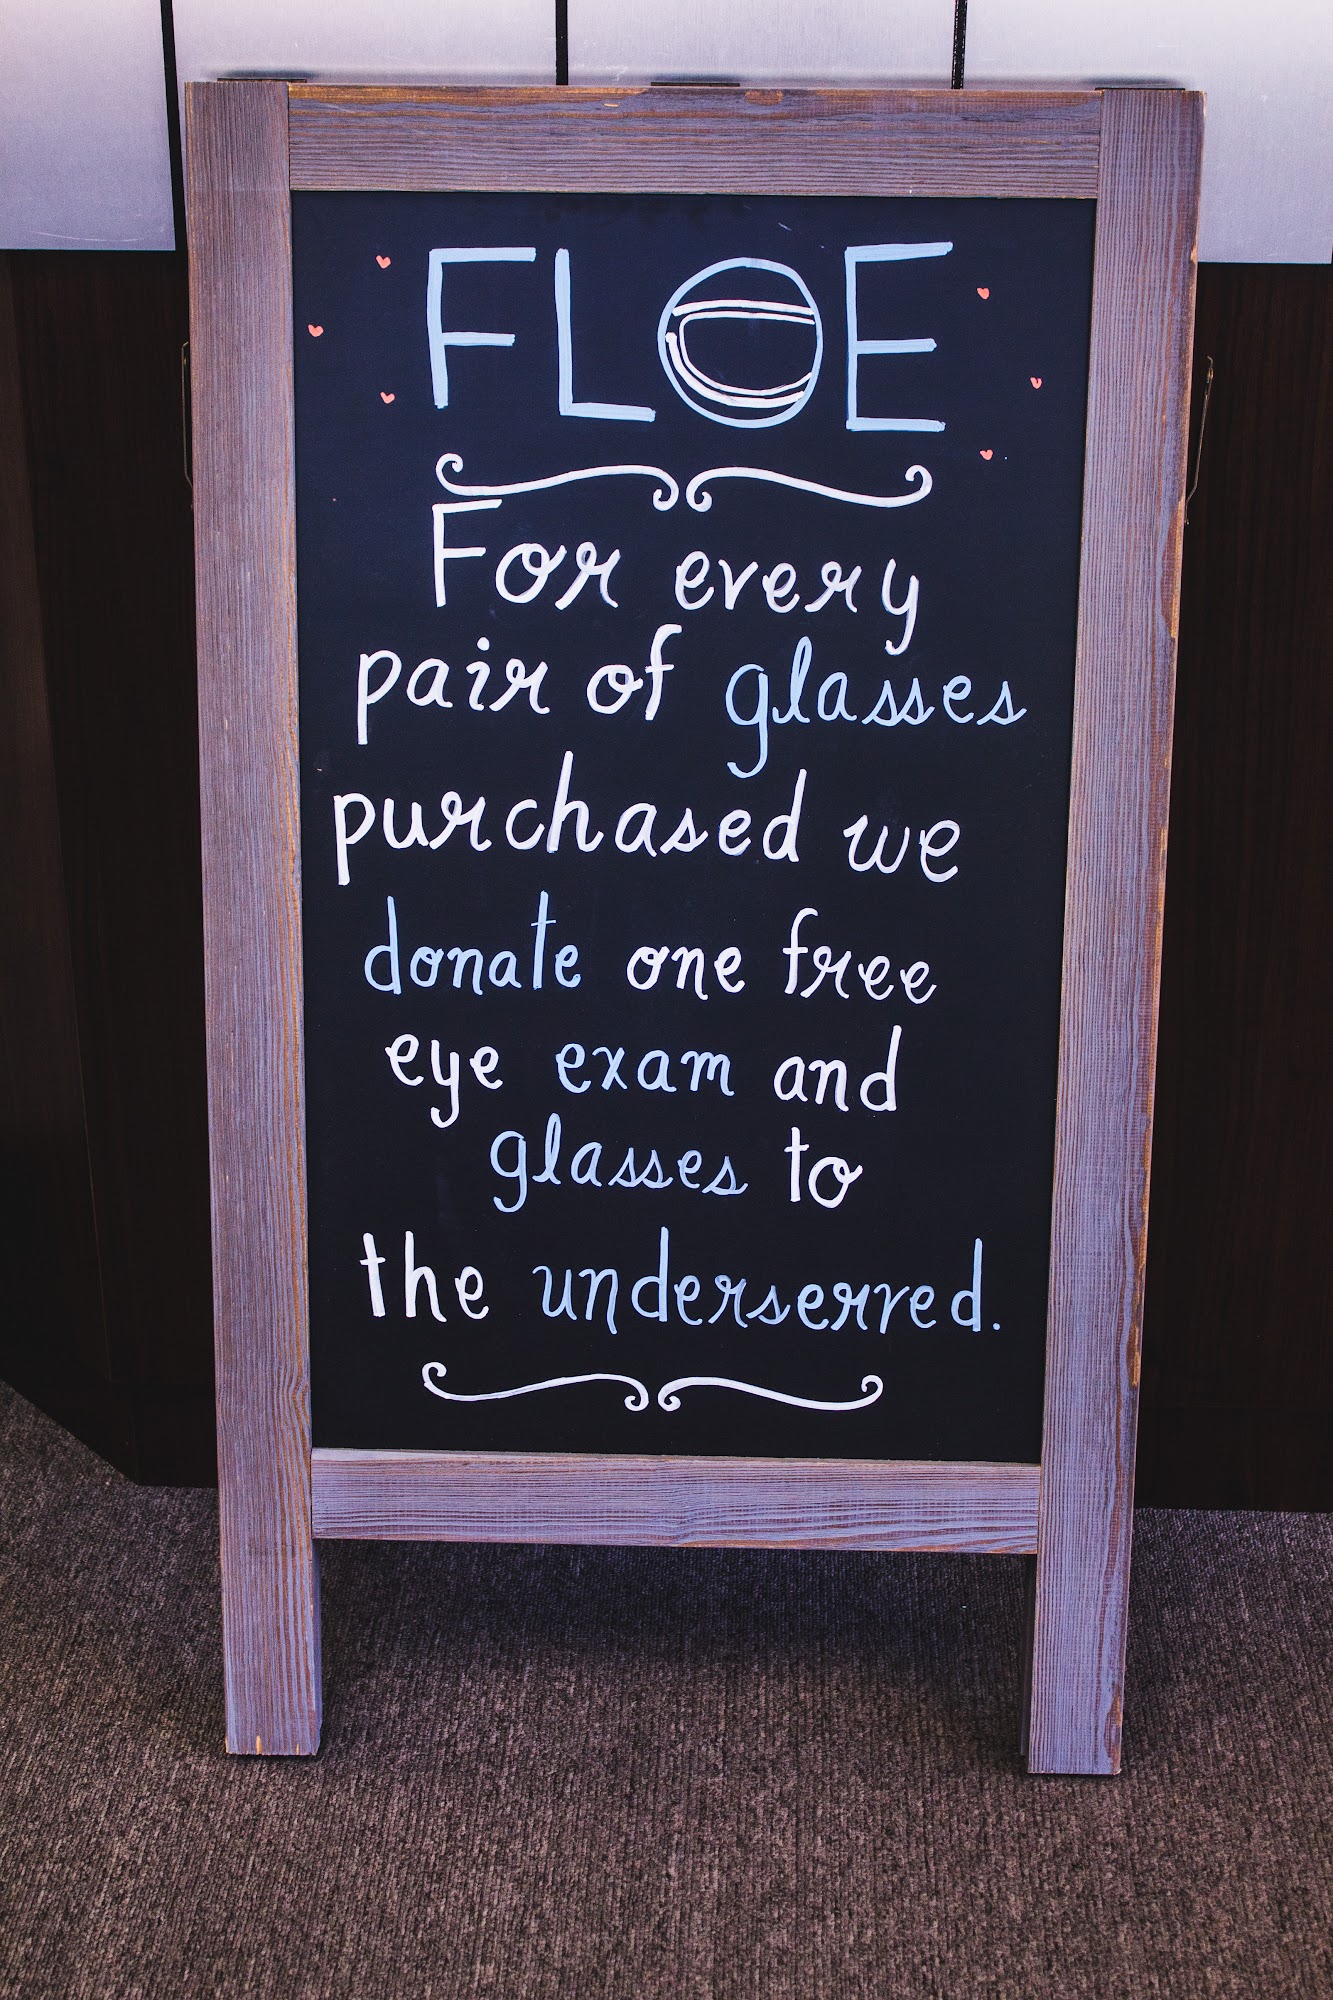 FLOE
For every
pair of glasses
purchased we
donate one free
eye exam and
glasses to
the underserved.